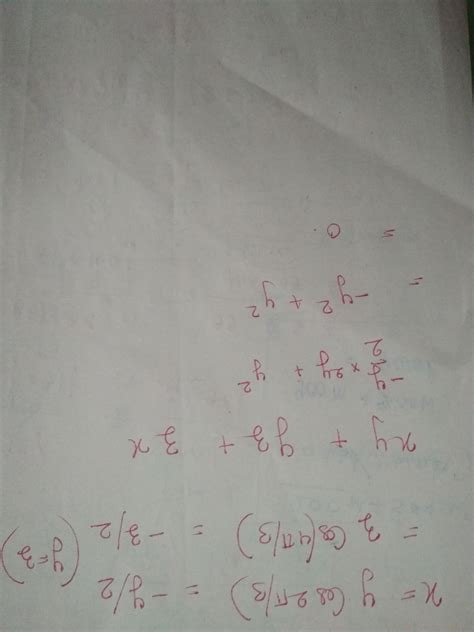 x = y Cos(2π/3) = -y/2
= z Cos(4π/3) = -z/2 (y=z)
xy + yz + zx
-y/2 × 2y + y²
= -y² + y²
= 0.